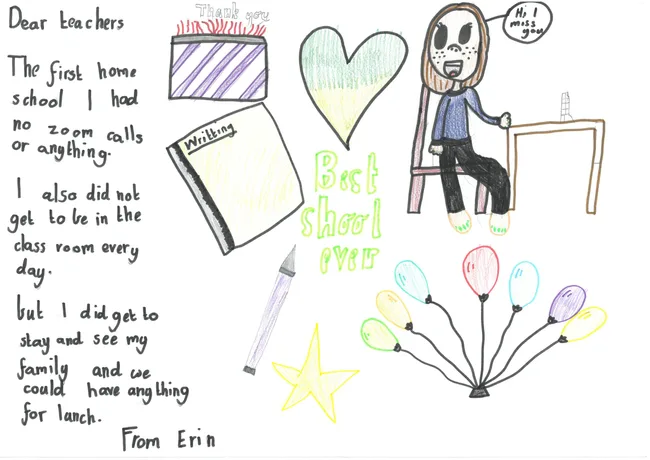 Dear teachers
The first home
school I had
no zoom calls
or anything.
I also did not
get to be in the
class room every
day.
but I did get to
stay and see my
family and we
could have anything
for lunch.
From Erin
Thank you
Writting
Best
shool
ever
Hi, I
miss
you